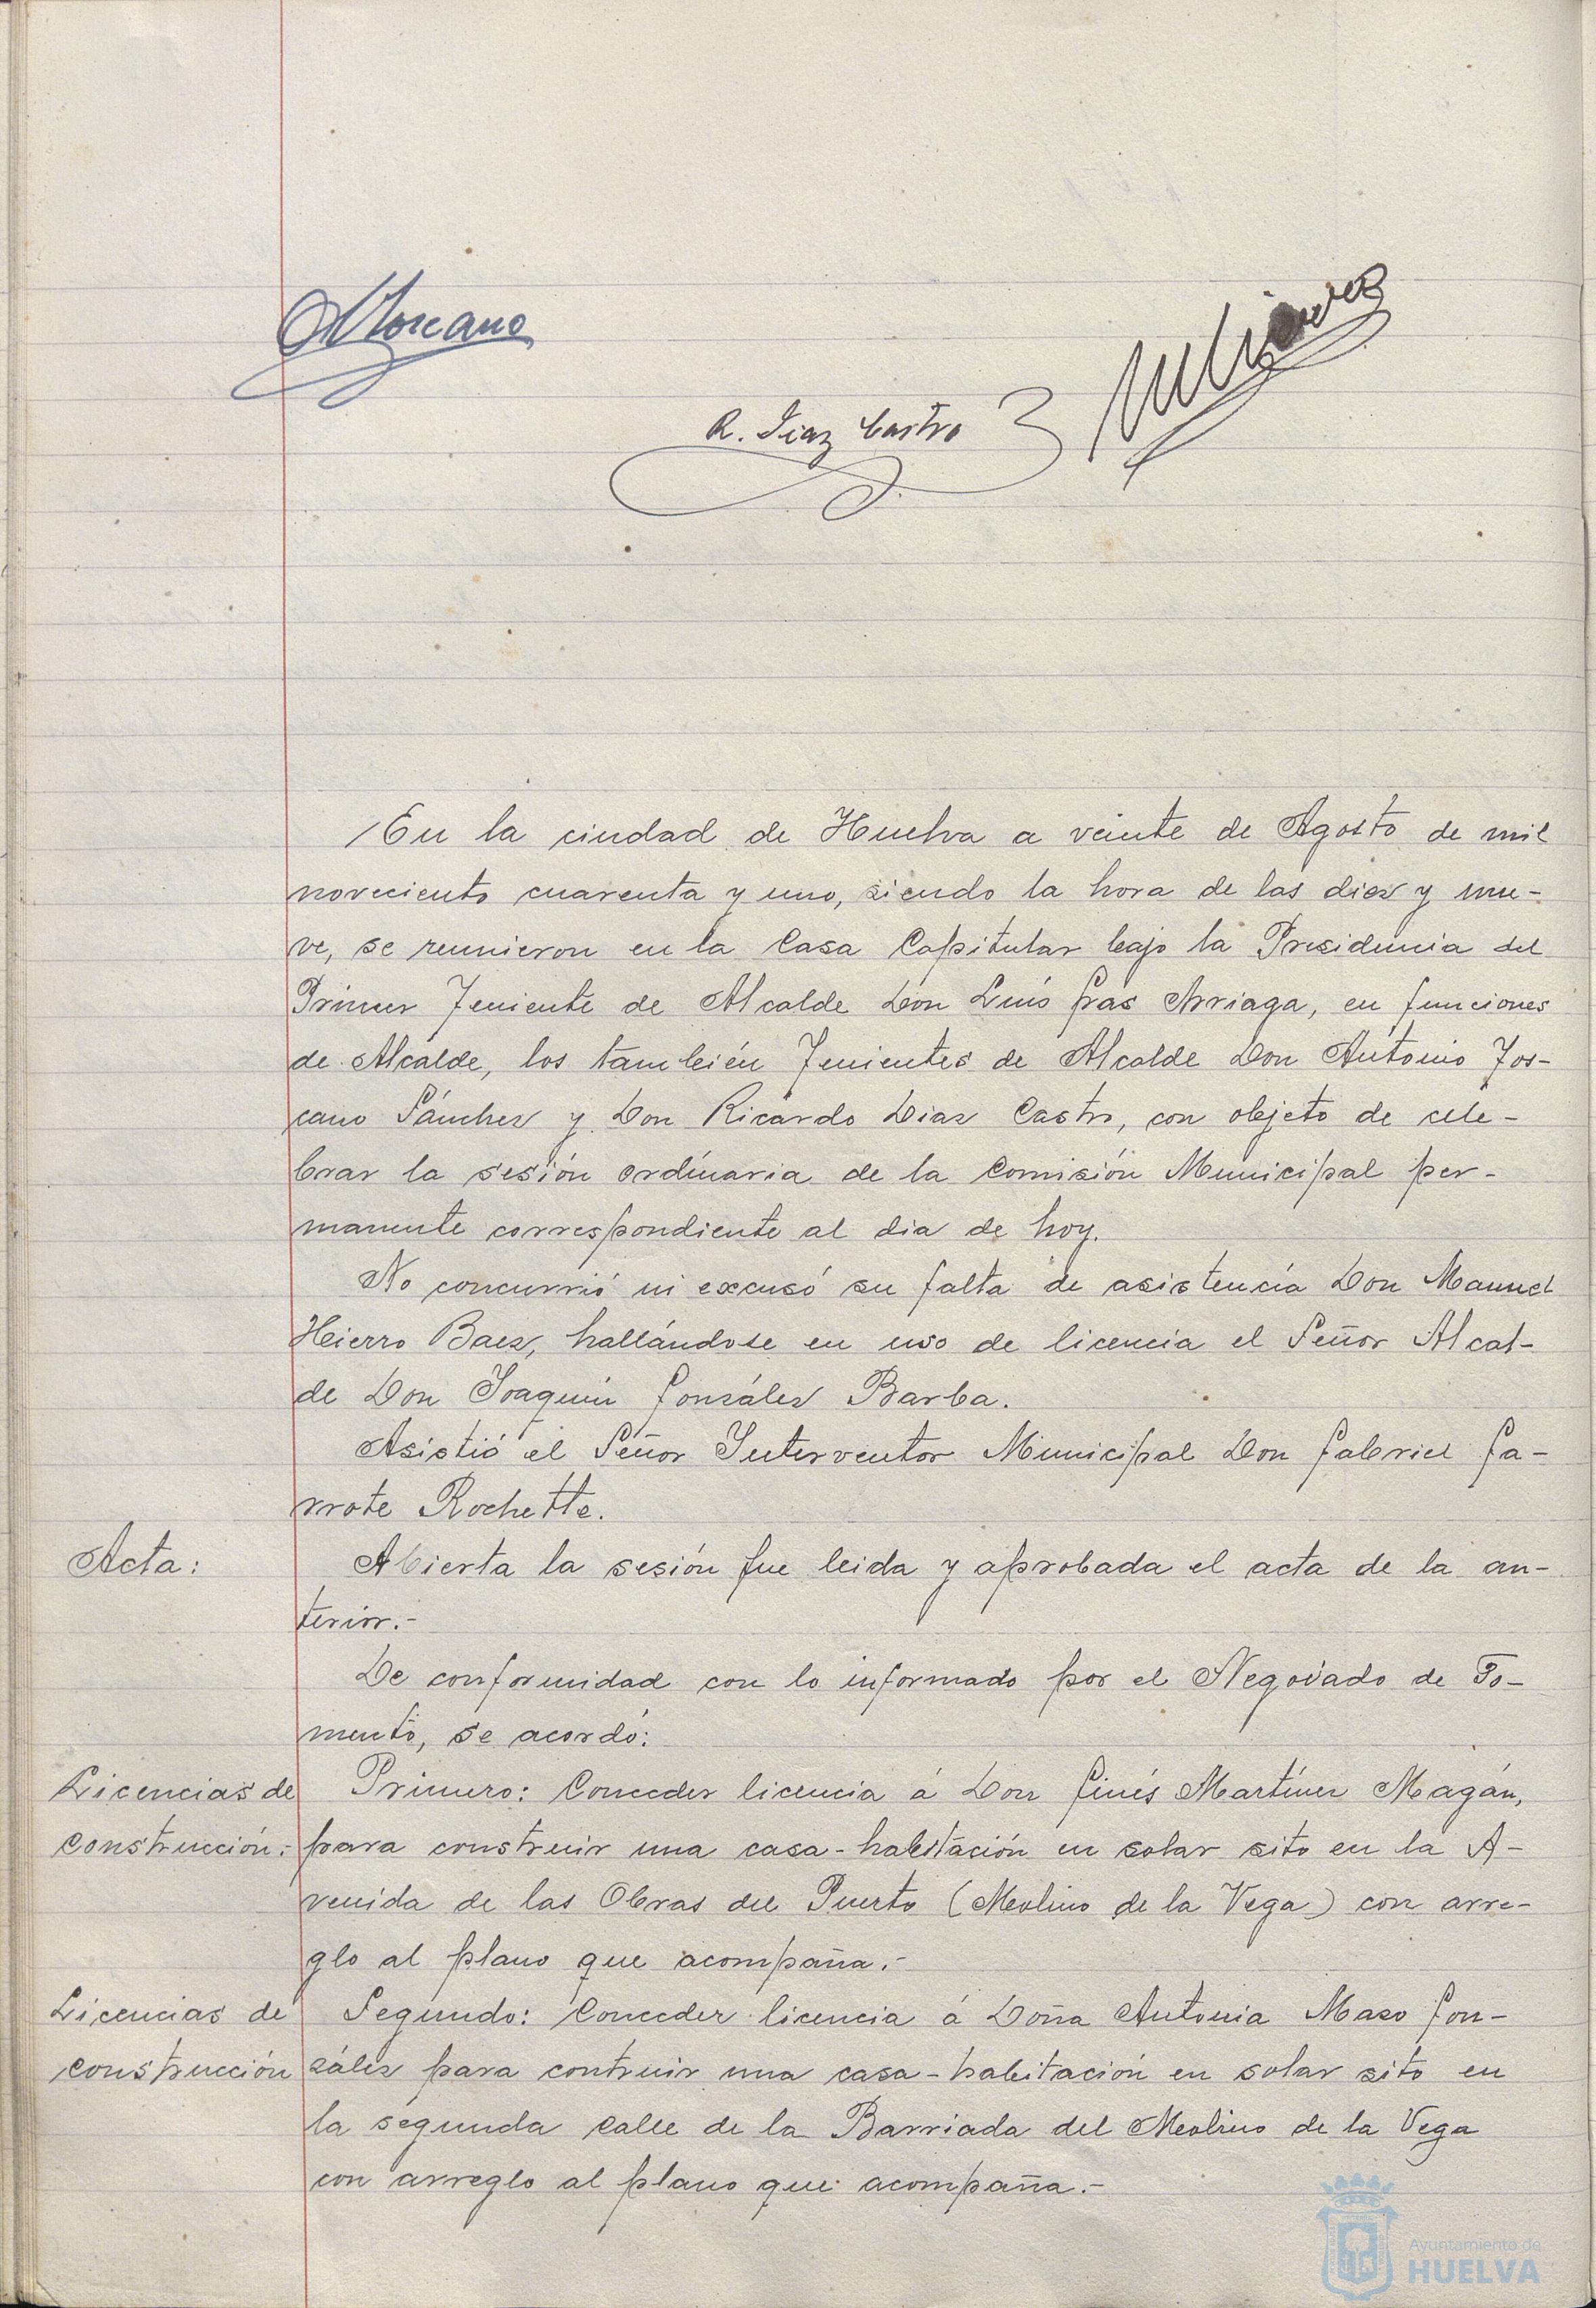 A Toscano
R. Diaz Castro
En la ciudad de Huelva a veinte de Agosto de mil
noveciento cuarenta y uno, siendo la hora de las diez y nue-
ve, se reunieron en la Casa Capitular bajo la Presidencia del
Primer Teniente de Alcalde Don Luis Gras Arriaga, en funciones
de Alcalde, los también Tenientes de Alcalde Don Antonio Tos-
cano Sánchez y Don Ricardo Diaz Castro, con objeto de cele-
brar la sesión ordinaria de la Comisión Municipal per-
manente correspondiente al dia de hoy.
No concurrió ni excusó su falta de asistencia Don Manuel
Hierro Baez, hallándose en uso de licencia el Señor Alcal-
de Don Joaquin González Barba.
Asistió el Señor Interventor Municipal Don Gabriel Ga-
rrote Rochette.
Acta: Abierta la sesión fue leida y aprobada el acta de la an-
terior.-
De conformidad con lo informado por el Negociado de Fo-
mento, se acordó:
Licencias de Primero: Conceder licencia á Don Ginés Martinez Magán,
construcción: para construir una casa-habitación en solar sito en la A-
venida de las Obras del Puerto (Molino de la Vega) con arre-
glo al plano que acompaña.-
Licencias de Segundo: Conceder licencia á Doña Antonia Mazo Gon-
construcción zález para contruir una casa-habitación en solar sito en
la segunda calle de la Barriada del Molino de la Vega
con arreglo al plano que acompaña.-
Ayuntamiento de
HUELVA